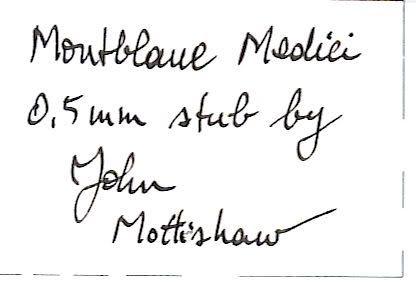 Montblanc Medici
0.5mm stub by
John
Mottishaw